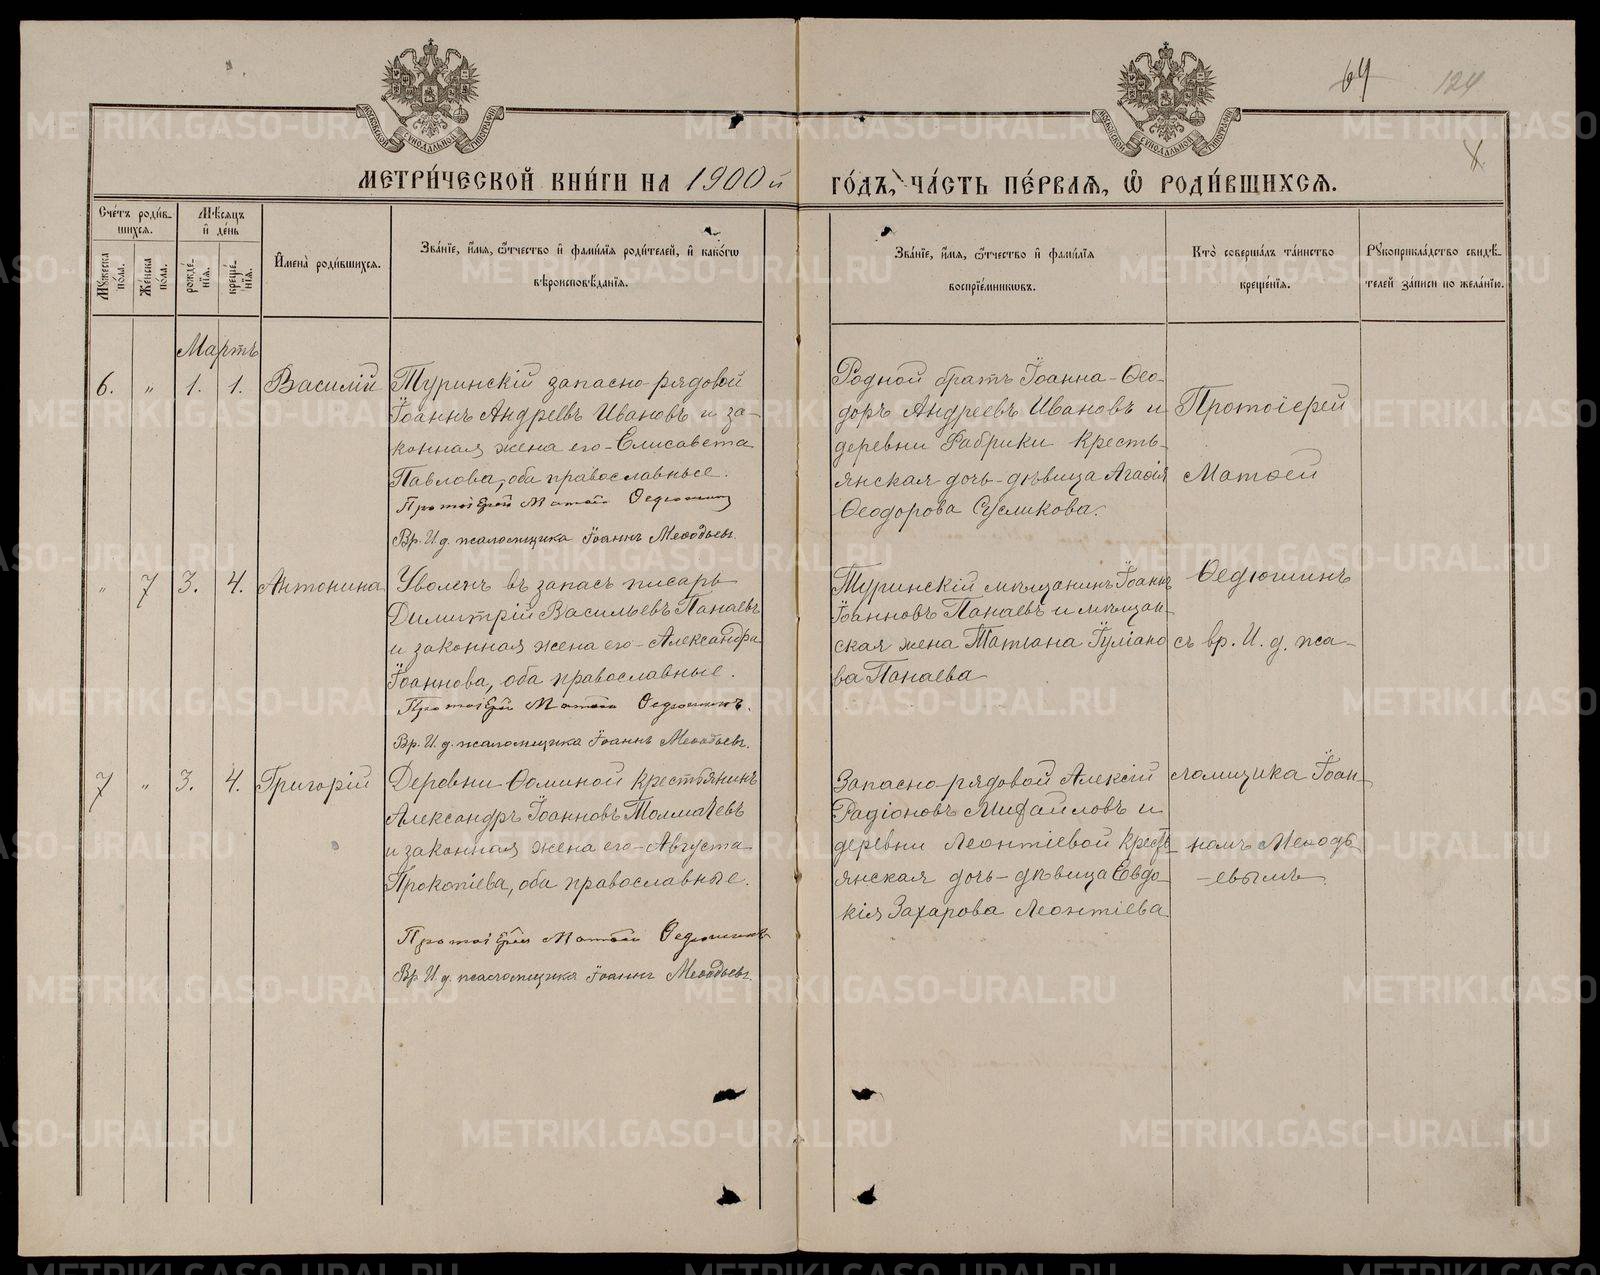 64 124
МЕТРИ́ЧЕСКОЙ КНИ́ГИ НА 1900й ГО́ДЪ, ЧА́СТЬ ПЕ́РВАЯ, Ѽ РОДИ́ВШИХСЯ.
Сче́тъ роди́в-
шихся.
Мѣ́сяцъ
и҆ де́нь
Му́жеска по́ла.
Же́нска по́ла.
рожде́-
нїя.
креще́-
нїя.
И҆мена̀ роди́вшихся.
Зва́нїе, и҆́мя, ѻ҆́тчество и҆ фами́лїя роди́телей, и҆ како́гѡ
вѣроисповѣ́данїя.
Зва́нїе, и҆́мя, ѻ҆́тчество и҆ фами́лїя
воспрїе́мникѡвъ.
Кто̀ соверша́лъ та́инство
креще́нїя.
Рꙋкоприкла́дство свидѣ́-
телей за́писи по жела́нїю.
Мартъ
6. " 1. 1. Василій
Туринскій запасно-рядовой
Іоаннъ Андреевъ Ивановъ и за-
конная жена его-Елисавета
Павлова, оба православные.
Протоіерей Матѳей Ѳедюшинъ
Вр. И. д. псаломщика Іоаннъ Меѳодьевъ.
Родной братъ Іоанна-Ѳео-
доръ Андреевъ Ивановъ и
деревни Фабрики кресть-
янская дочь-дѣвица Агаѳія
Ѳеодорова Сусликова.
Протоіерей
Матѳей
" 7 3. 4. Антонина
Уволенъ въ запасъ писарь
Димитрій Васильевъ Панаевъ
и законная жена его-Александра
Іоаннова, оба православные.
Протоіерей Матѳей Ѳедюшинъ.
Вр. И. д. псаломщика Іоаннъ Меѳодьевъ.
Туринскій мѣщанинъ Іоаннъ
Іоанновъ Панаевъ и мѣщан-
ская жена Татіана Іуліано
ва Панаева
Ѳедюшинъ
съ вр. И. д. пса-
7 " 3. 4. Григорій
Деревни Ѳоминой крестьянинъ
Александръ Іоанновъ Толмачевъ
и законная жена его-Августа
Прокопіева, оба православные.
Протоіерей Матѳей Ѳедюшинъ
Вр. И. д. псаломщика Іоаннъ Меѳодьевъ.
Запасно-рядовой Алексій
Радіоновъ Михайловъ и
деревни Леонтіевой крестъ
янская дочь-дѣвица Евдо
кія Захарова Леонтіева
ломщика Іоан
номъ Меѳодь
-евымъ.
METRIKI.GASO-URAL.RU